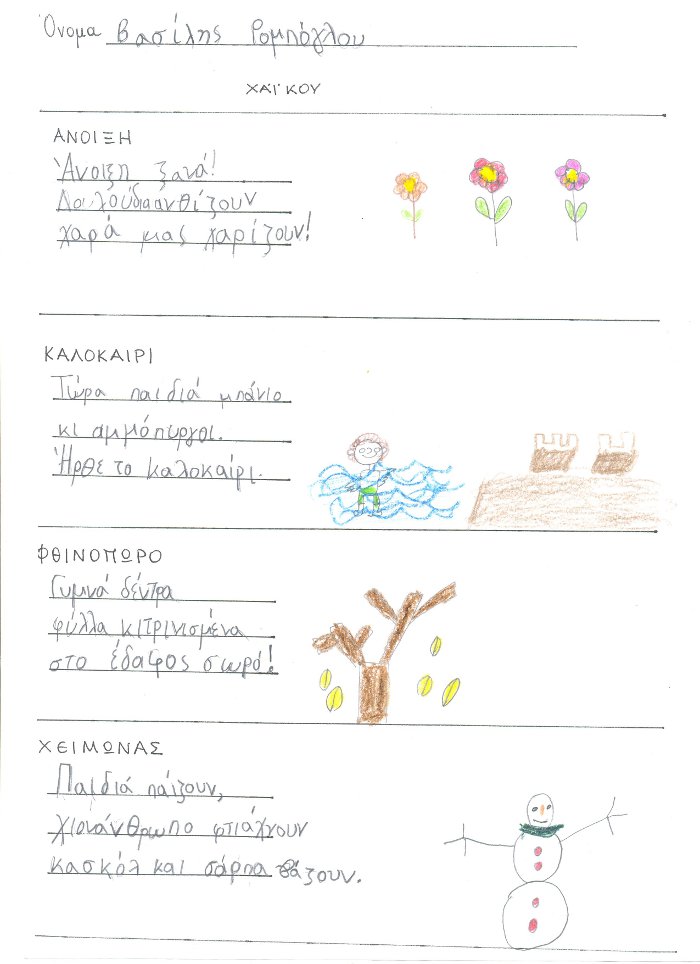 Όνομα Βασίλης Ρομπόγλου
ΧΑΪΚΟΥ
ΑΝΟΙΞΗ
Άνοιξη ξανά!
Λουλούδια ανθίζουν
χαρά μας χαρίζουν!
ΚΑΛΟΚΑΙΡΙ
Τώρα παιδιά μπάνιο
κι αμμόπυργοι.
Ήρθε το καλοκαίρι.
ΦΘΙΝΟΠΩΡΟ
Γυμνά δέντρα
φύλλα κιτρινισμένα
στο έδαφος σωρό!
ΧΕΙΜΩΝΑΣ
Παιδιά παίζουν,
χιονάνθρωπο φτιάχνουν
κασκόλ και σάρπα βάζουν.